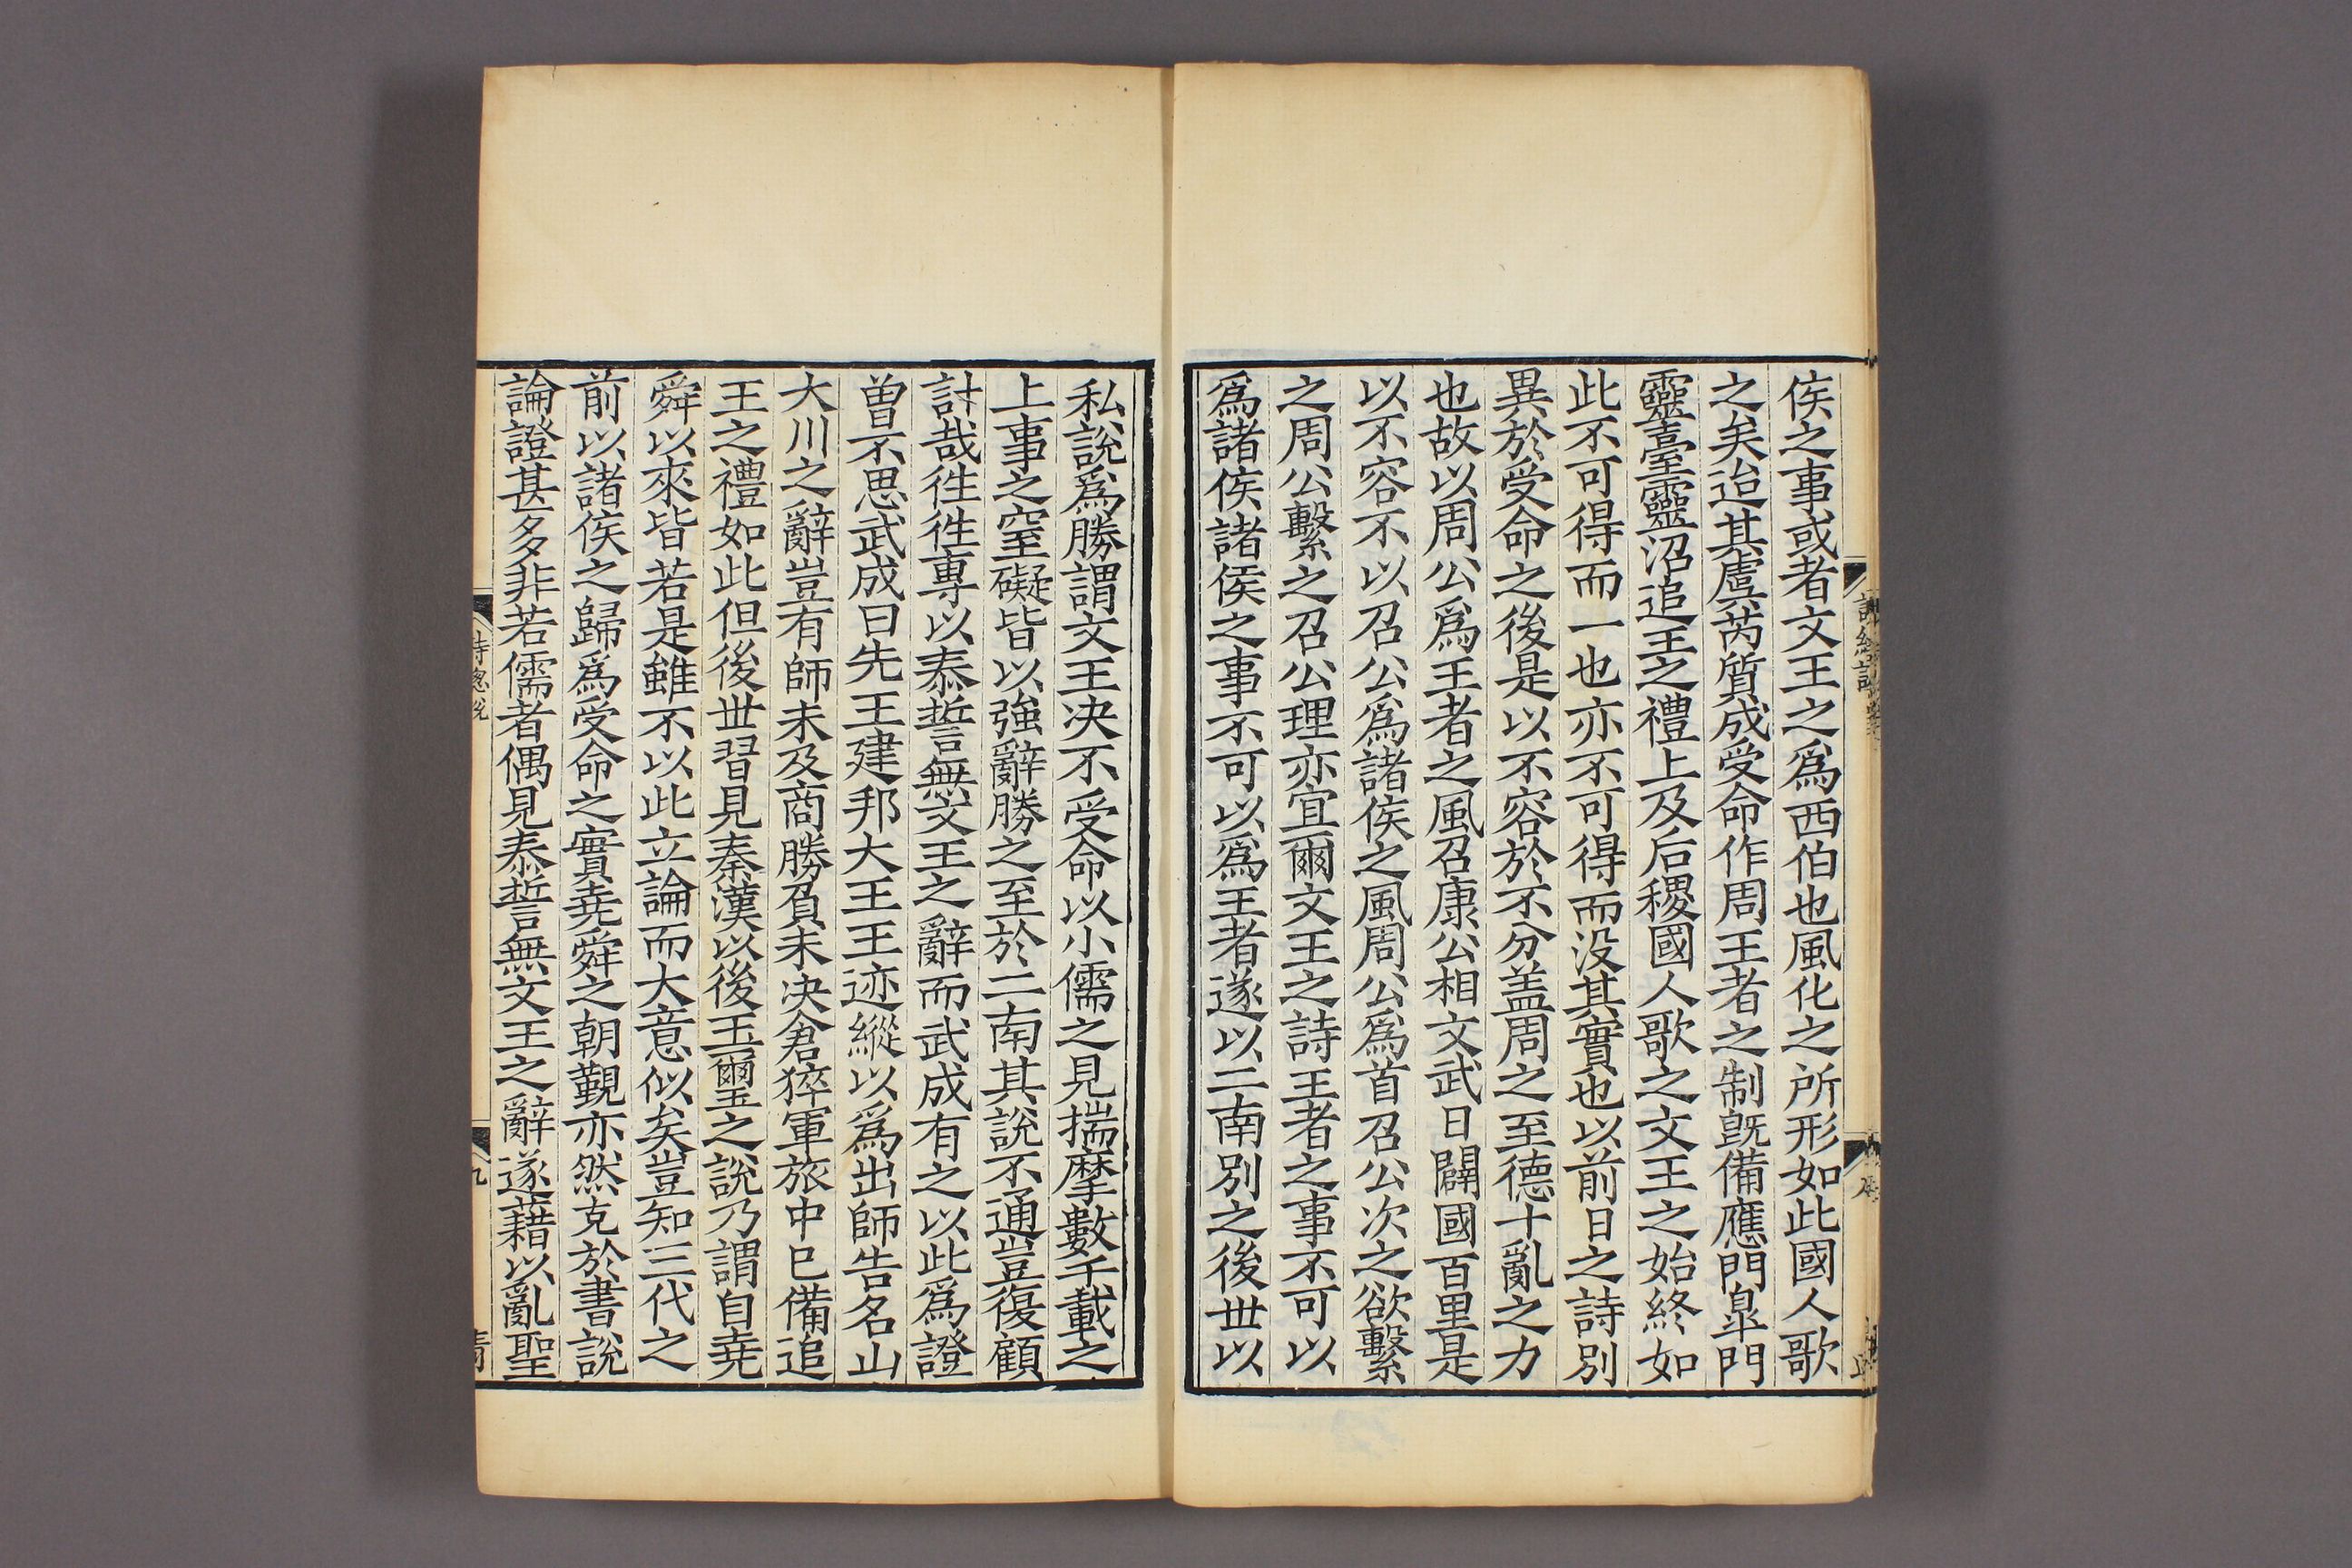 侯之事或者文王之爲西伯也風化之所形如此國人歌
之矣迨其虞芮質成受命作周王者之制旣備應門皐門
靈臺靈沼追王之禮上及后稷國人歌之文王之始終如
此不可得而一也亦不可得而没其實也以前日之詩别
異於受命之後是以不容於不分盖周之至德十亂之力
也故以周公爲王者之風召康公相文武日闢國百里是
以不容不以召公爲諸侯之風周公爲首召公次之欲繫
之周公繫之召公理亦宜爾文王之詩王者之事不可以
爲諸侯諸侯之事不可以爲王者遂以二南别之後世以
私說爲勝謂文王决不受命以小儒之見揣摩數千載之
上事之窒礙皆以強辭勝之至於二南其說不通豈復顧
計哉徃徃專以泰誓無文王之辭而武成有之以此爲證
曾不思武成曰先王建邦大王王迹縱以爲出師告名山
大川之辭豈有師未及商勝負未决倉猝軍旅中已備追
王之禮如此但後世習見秦漢以後玉璽之說乃謂自堯
舜以來皆若是雖不以此立論而大意似矣豈知三代之
前以諸侯之歸爲受命之實堯舜之朝覲亦然克於書說
論證甚多非若儒者偶見泰誓無文王之辭遂藉以亂聖
詩總說
九